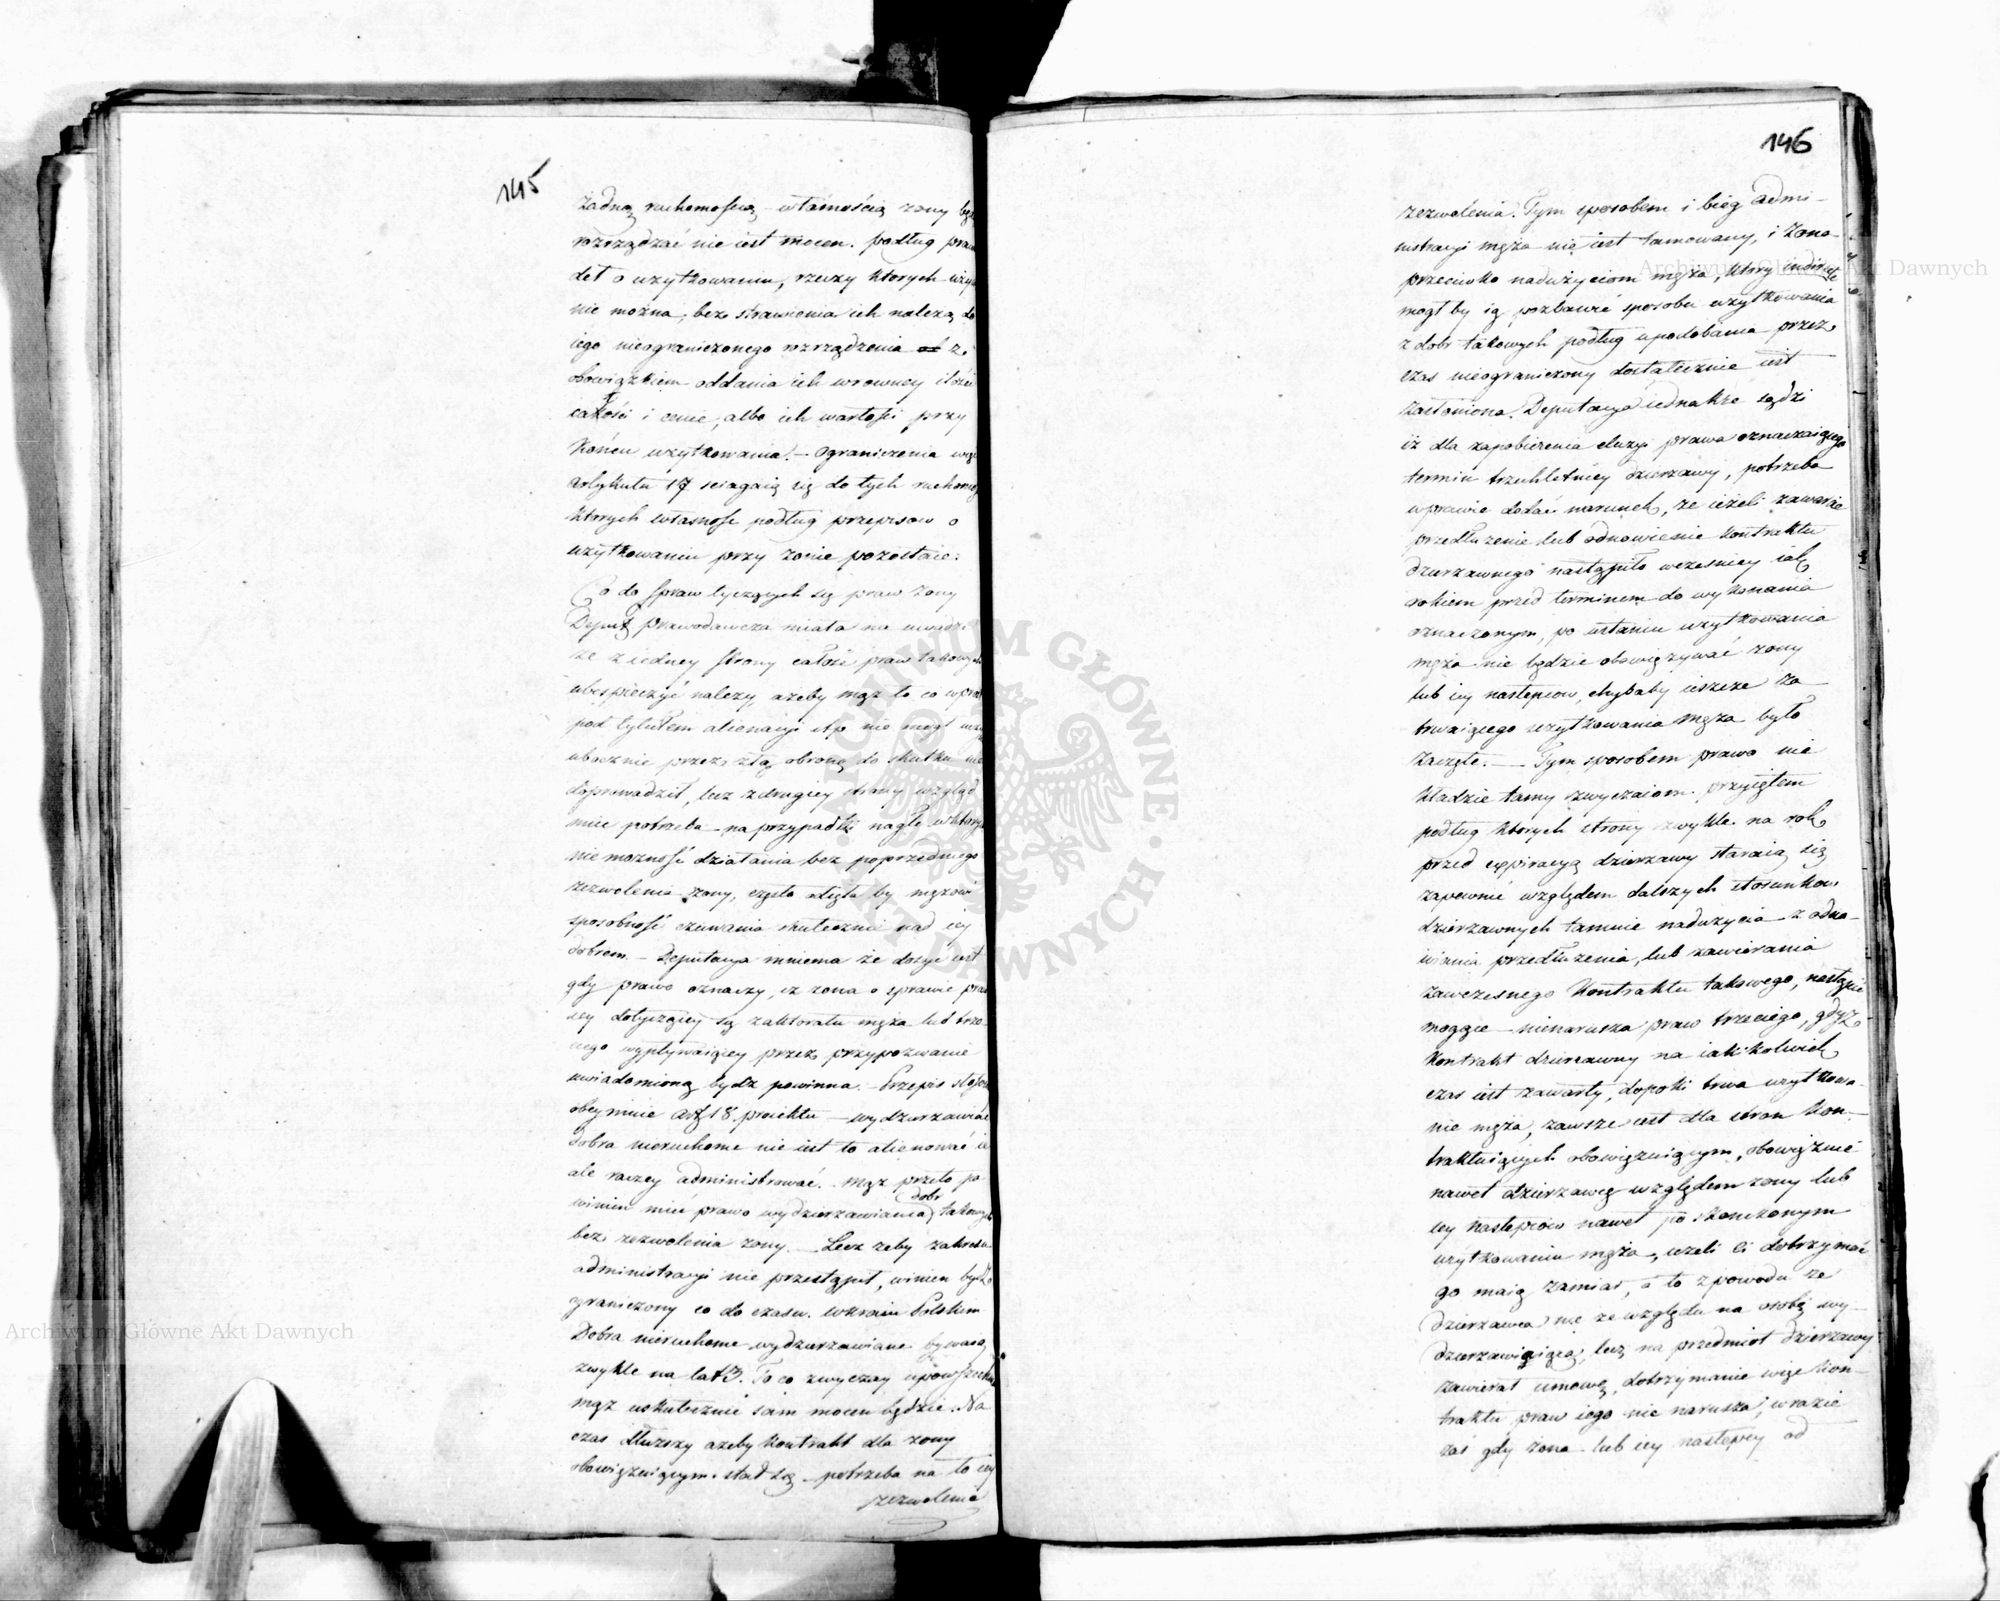 145
żadną ruchomością własnością żony
rozrządzać nie iest mocen. podług
det o użytkowaniu, rzeczy których
nie można, bez strawienia ich należą do
iego nieograniczonego rozrządzenia z
obowiązkiem oddania ich w rowney ilości
całości i cenie, albo ich wartości przy
końcu użytkowania. – Ograniczenia
artykułu 17 sciągaią się do tych
ktorych własność podług przepisow o
użytkowaniu przy żonie pozostaie.
Co do spraw tyczących się praw żony
Deput prawodawcza miała na uwadze
że z iedney strony całość praw takowych
ubespieczyć należy, ażeby mąż to co
pod tytułem alienacyi nie mogł
ubocznie przez złą obronę do skutku nie
doprowadził, lecz z drugiey strony wzgląd
mieć potrzeba na przypadki nagłe w ktorych
niemożność działania bez poprzedniego
zezwolenia żony, często by mężowi
sposobność czuwania skutecznie nad iey
dobrem. – Deputacya mniema że dosyć iest
gdy prawo oznaczy, iż żona o sprawie
iey dotyczącey się z aktoratu męża lub trze-
ciego wypływaiącey przez przypozwanie
uwiadomioną bydź powinna. – Przepis
obeymuie art 18 proiektu – wydzierżawiać
dobra nieruchome nie iest to alienować ie
ale raczey administrować. – Mąż przeto po-
winien mieć prawo wydzierżawiania dobr takowych
bez zezwolenia żony. – Lecz żeby zakresu
administracyi nie przestąpił, winien bydź
graniczony co do czasu. w kraiu Polskim
Dobra nieruchome wydzierżawiane bywaią
zwykle na lat 3. To co zwyczay
mąż uskutecznić sam mocen będzie. Na
czas dłuższy ażeby kontrakt dla żony
obowiązuiącym stał się potrzeba na to iey
zezwolenia
146
zezwolenia. Tym sposobem i bieg admi-
nistracyi męża nie iest tamowany, i żona
przeciwko nadużyciom męża, ktory
mogł by ią pozbawić sposobu użytkowania
z dobr takowych podług upodobania przez
czas nieograniczony dostatecznie iest
zasłoniona. Deputacya iednakże sądzi
iż dla zapobieżenia eluzyi prawa oznaczaiącego
termin trzechletniey dzierżawy, potrzeba
w prawie dodać warunek, że ieżeli zawarcie
przedłużenie lub odnowienie kontraktu
dzierżawnego nastąpiło wcześniey iak
rokiem przed terminem do wykonania
oznaczonym, po ustaniu użytkowania
męża nie będzie obowiązywać żony
lub iey następcow, chybaby ieszcze za
trwaiącego użytkowania męża było
zaczęte. – Tym sposobem prawo nie
kładzie tamy zwyczaiom przyiętem
podług ktorych strony zwykle na rok
przed expiracyą dzierżawy staraią się
zapewnić względem dalszych stosunkow
dzierżawnych tamuie nadużycia z odna-
wiania przedłużenia, lub zawierania
zawczesnego kontraktu takowego, nastąpić
mogące – nienarusza praw trzeciego, gdyż
kontrakt dzierżawny na iak kolwiek
czas iest zawarty, dopoki trwa użytkowa-
nie męża, zawsze iest dla stron kon-
traktuiących obowiązuiącym, obowiązuie
nawet dzierżawcę względem żony lub
iey następcow nawet po skończonym
użytkowaniu męża, ieżeli ci dotrzymać
go maią zamiar, a to z powodu że
dzierżawca nie ze względu na osobę wy-
dzierżawiaiącą, lecz na przedmiot dzierżawy
zawierał umowę, dotrzymanie więc kon-
traktu praw iego nie narusza, w razie
zaś gdy żona lub iey następcy od